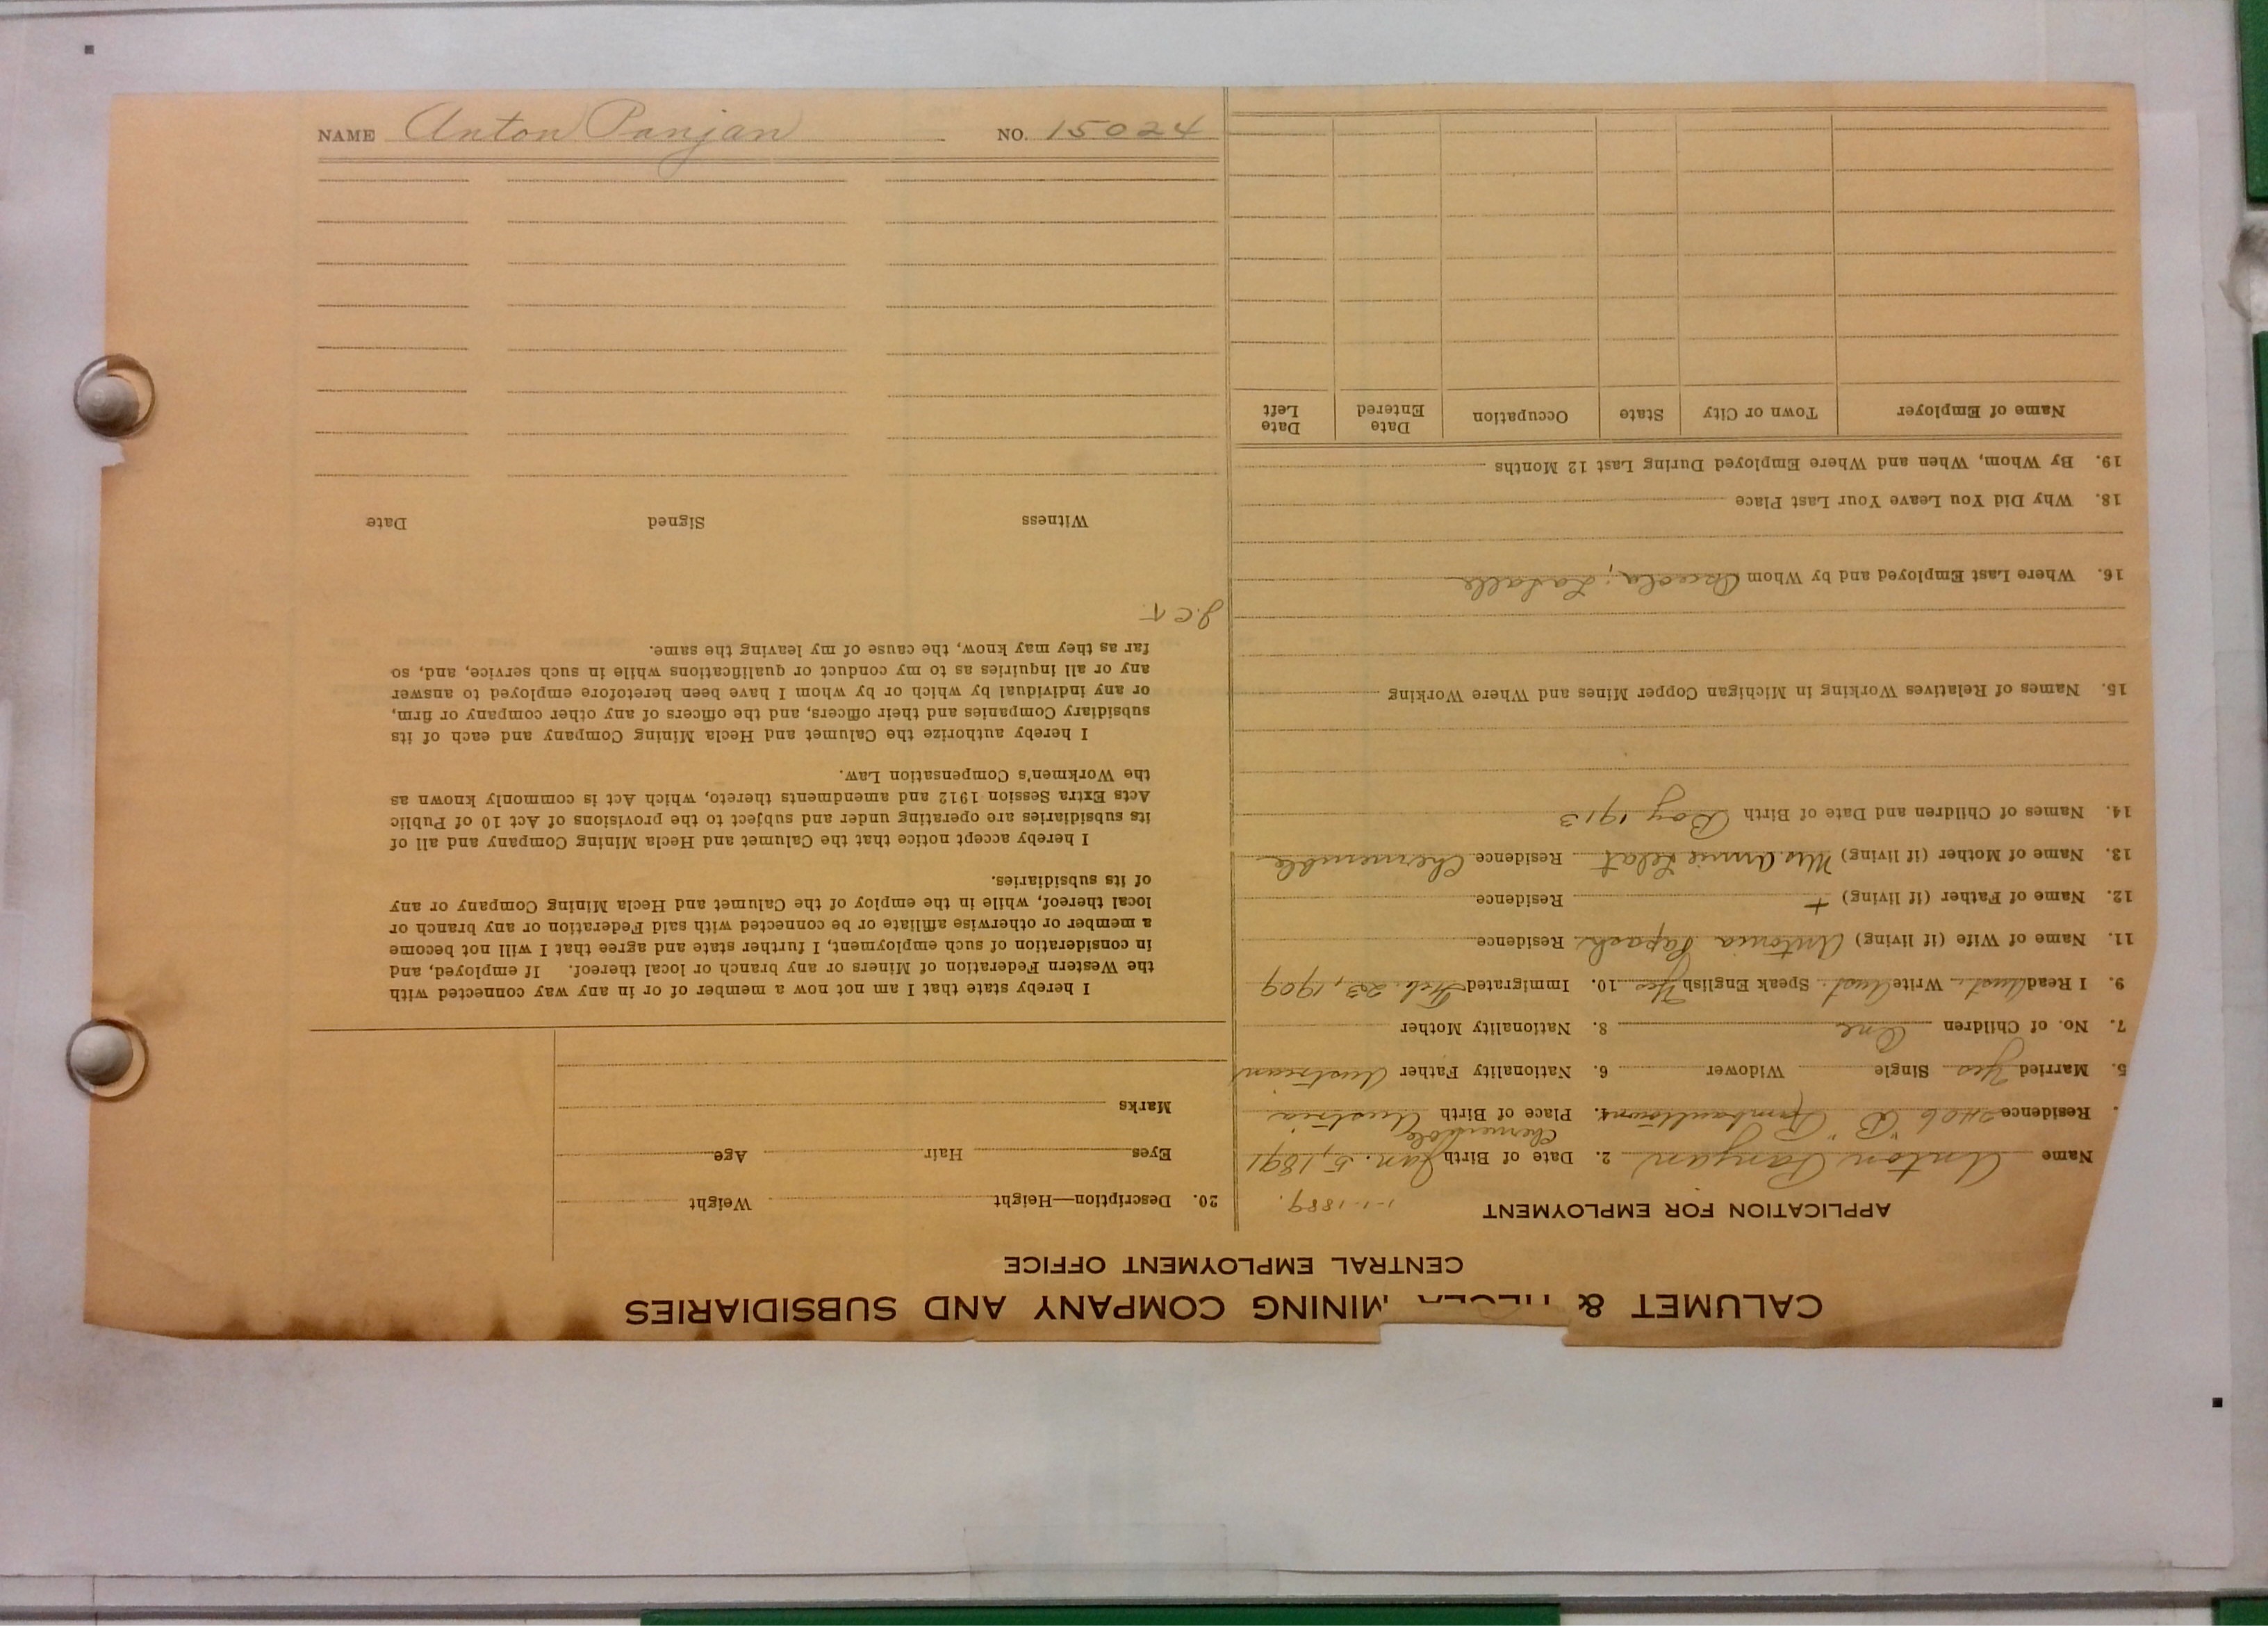 NAME Anton Panjan NO. 15024
CALUMET & HECLA MINING COMPANY AND SUBSIDIARIES
CENTRAL EMPLOYMENT OFFICE
APPLICATION FOR EMPLOYMENT
1-1-1889.
Name Anton Panyan 2. Date of Birth Jan. 5, 1891
Residence 2406 "B" 4. Place of Birth Austria
5. Married Yes Single Widower 6. Nationality Father Austrian
7. No. of Children One 8. Nationality Mother
9. I Read Aust. Write Aust. Speak English Yes 10. Immigrated Feb. 23, 1909
11. Name of Wife (if living) Antonia Residence
12. Name of Father (if living) + Residence
13. Name of Mother (if living) Mrs. Annie Residence
14. Names of Children and Date of Birth Boy 1913
15. Names of Relatives Working in Michigan Copper Mines and Where Working
16. Where Last Employed and by Whom Osceola; LaSalle
18. Why Did You Leave Your Last Place
19. By Whom, When and Where Employed During Last 12 Months
Name of Employer Town or City State Occupation Date Entered Date Left
20. Description—Height Weight
Eyes Hair Age
Marks
I hereby state that I am not now a member of or in any way connected with
the Western Federation of Miners or any branch or local thereof. If employed, and
in consideration of such employment, I further state and agree that I will not become
a member or otherwise affiliate or be connected with said Federation or any branch or
local thereof, while in the employ of the Calumet and Hecla Mining Company or any
of its subsidiaries.
I hereby accept notice that the Calumet and Hecla Mining Company and all of
its subsidiaries are operating under and subject to the provisions of Act 10 of Public
Acts Extra Session 1912 and amendments thereto, which Act is commonly known as
the Workmen's Compensation Law.
I hereby authorize the Calumet and Hecla Mining Company and each of its
subsidiary Companies and their officers, and the officers of any other company or firm,
or any individual by which or by whom I have been heretofore employed to answer
any or all inquiries as to my conduct or qualifications while in such service, and, so
far as they may know, the cause of my leaving the same.
Witness Signed Date